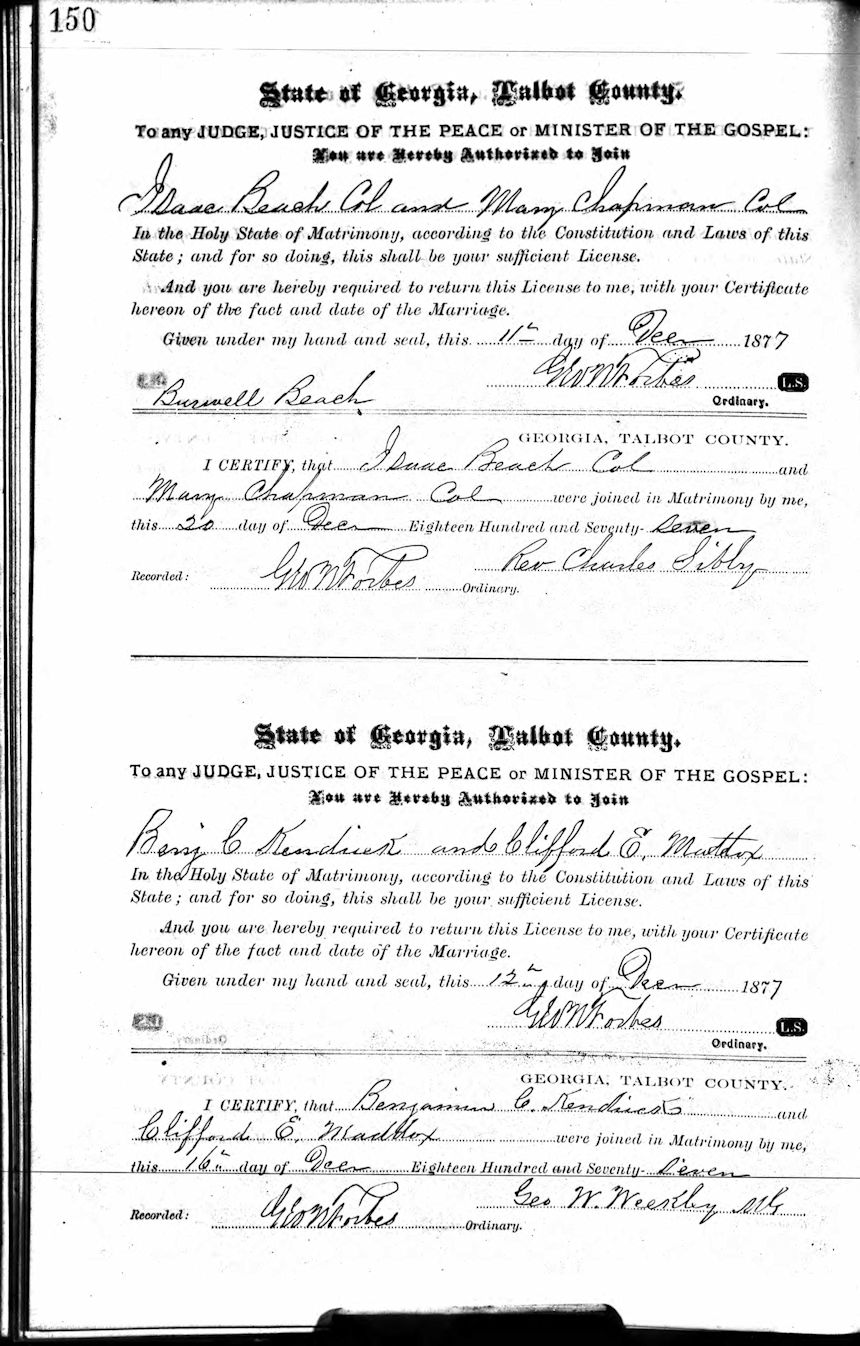 150
State of Georgia, Talbot County.
To any JUDGE, JUSTICE OF THE PEACE or MINISTER OF THE GOSPEL:
You are Hereby Authorized to Join
Isaac Beach Col and Mary Chapman Col
In the Holy State of Matrimony, according to the Constitution and Laws of this
State; and for so doing, this shall be your sufficient License.
And you are hereby required to return this License to me, with your Certificate
hereon of the fact and date of the Marriage.
Given under my hand and seal, this 11th day of Decr 1877
Geo N Forbes L.S.
Burwell Beach Ordinary.
GEORGIA, TALBOT COUNTY.
I CERTIFY, that Isaac Beach Col and
Mary Chapman Col were joined in Matrimony by me,
this 20 day of Decr Eighteen Hundred and Seventy-seven
Rev Charles Sibly
Recorded: Geo N Forbes Ordinary.
State of Georgia, Talbot County.
To any JUDGE, JUSTICE OF THE PEACE or MINISTER OF THE GOSPEL:
You are Hereby Authorized to Join
Benj C Kendrick and Clifford E. Maddox
In the Holy State of Matrimony, according to the Constitution and Laws of this
State; and for so doing, this shall be your sufficient License.
And you are hereby required to return this License to me, with your Certificate
hereon of the fact and date of the Marriage.
Given under my hand and seal, this 12th day of Decr 1877
Geo N Forbes L.S.
Ordinary.
GEORGIA, TALBOT COUNTY.
I CERTIFY, that Benjamin C. Kendrick and
Clifford E. Maddox were joined in Matrimony by me,
this 16th day of Decr Eighteen Hundred and Seventy-seven
Geo W. Weekley MG
Recorded: Geo N Forbes Ordinary.